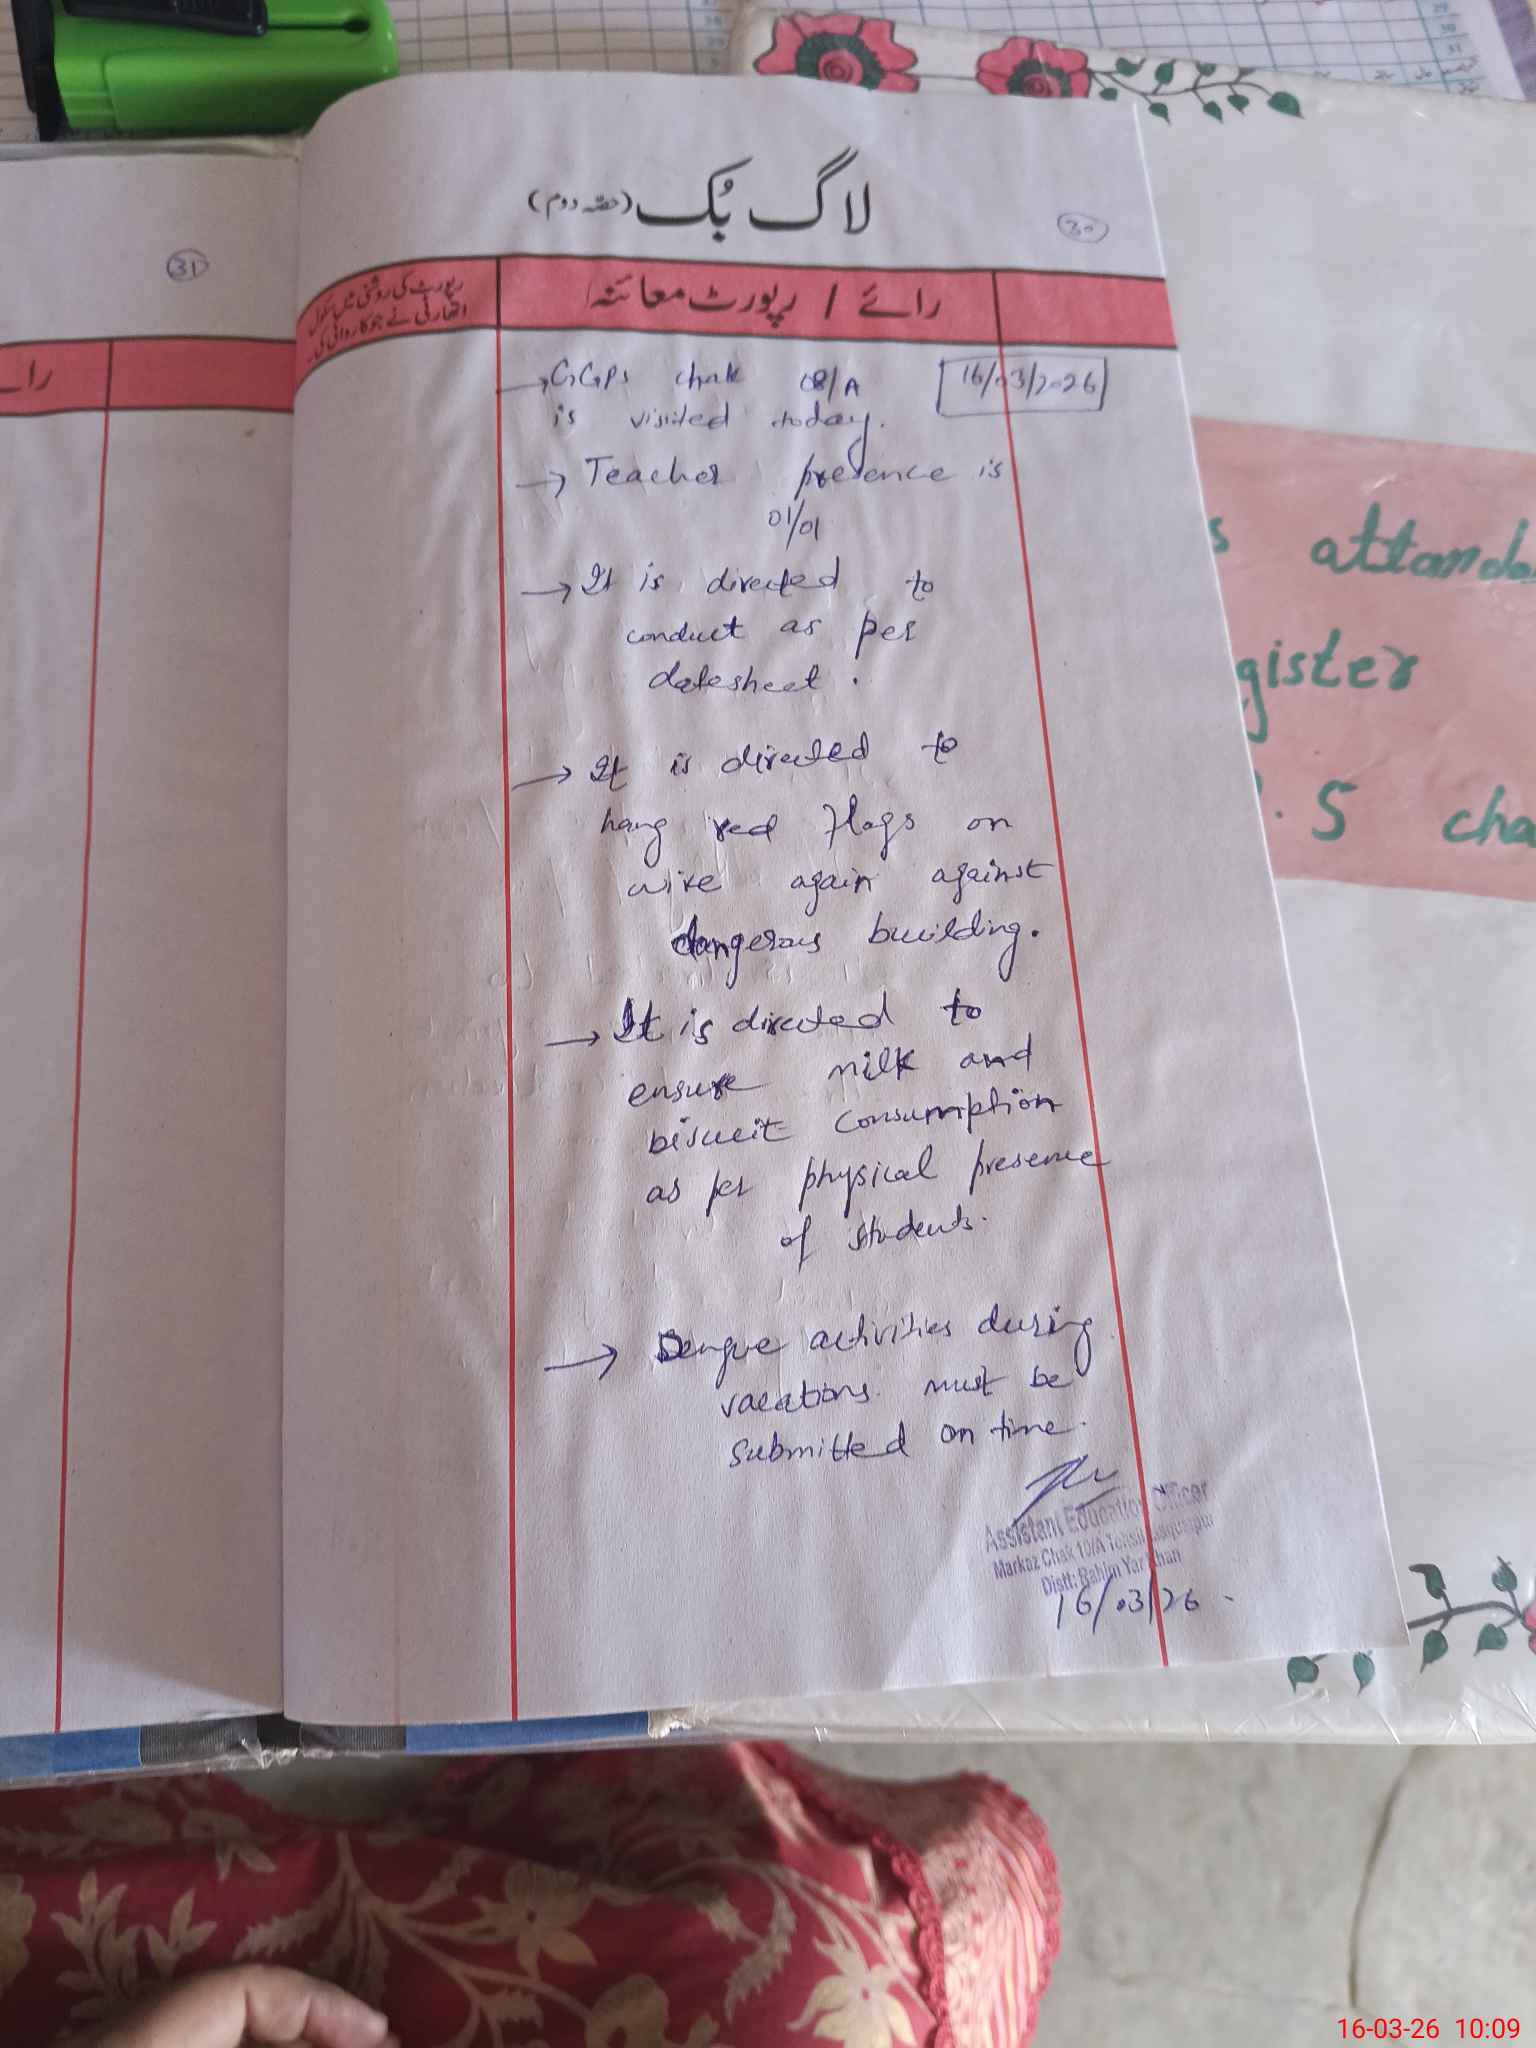 لاگ بُک (حصّہ دوم)
30
31
رپورٹ کی روشنی میں سکول
اتھارٹی نے جو کاروائی کی۔
رائے / رپورٹ معائنہ
را
→ GGPS chak 08/A
16/03/2026
is visited today.
→ Teacher presence is
01/01
→ It is directed to
conduct as per
datesheet.
→ It is directed to
hang red flags on
wire again against
dangerous building.
→ It is directed to
ensure milk and
biscuit consumption
as per physical presence
of students.
→ Dengue activities during
vacations must be
submitted on time.
Assistant Education Officer
Markaz Chak 10/A Tehsil
Distt: Rahim Yar Khan
16/03/26
s attanda
gister
. S cha
16-03-26 10:09